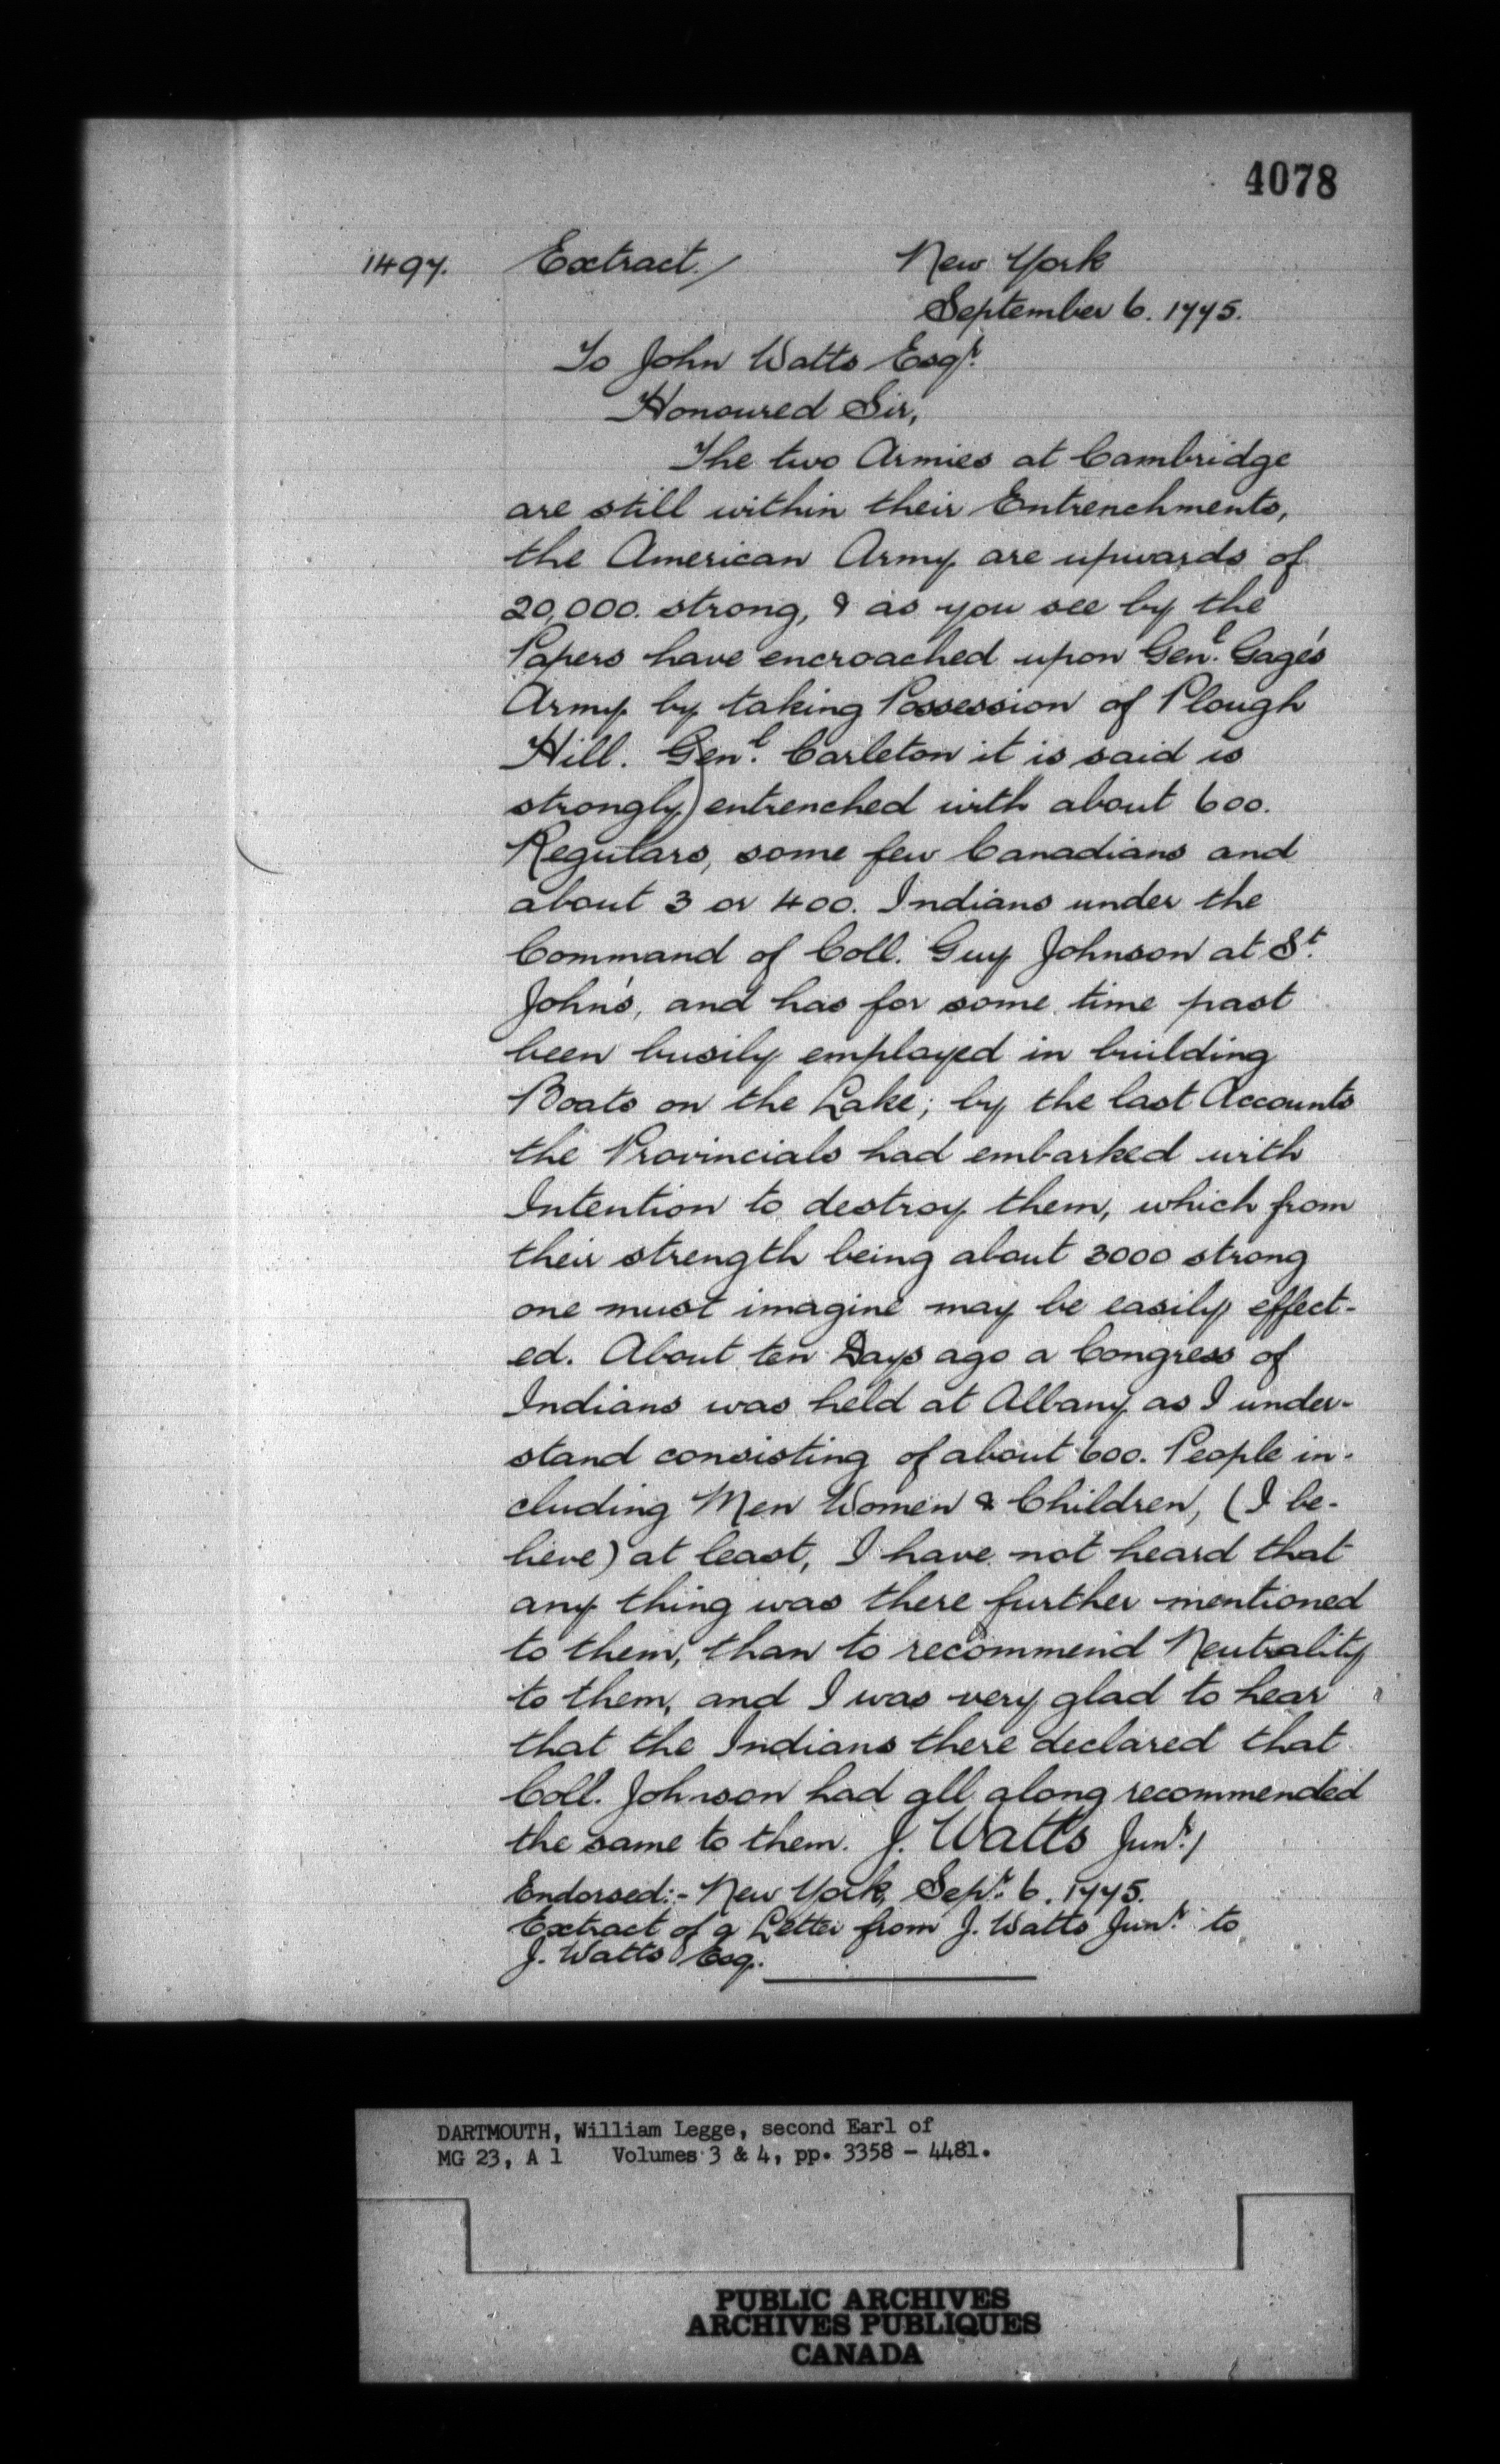 4078
1497. Extract./ New York
September 6. 1775.
To John Watts Esqr.
Honoured Sir,
The two Armies at Cambridge
are still within their Entrenchments,
the American Army are upwards of
20,000. strong, & as you see by the
Papers have encroached upon Genl. Gage's
Army by taking Possession of Plough
Hill. Genl. Carleton it is said is
strongly entrenched with about 600.
Regulars, some few Canadians and
about 3 or 400. Indians under the
Command of Coll. Guy Johnson at St.
John's, and has for some time past
been busily employed in building
Boats on the Lake; by the last Accounts
the Provincials had embarked with
Intention to destroy them, which from
their strength being about 3000 strong
one must imagine may be easily effect-
ed. About ten Days ago a Congress of
Indians was held at Albany as I under-
stand consisting of about 600. People in-
cluding Men Women & Children, (I be-
lieve) at least, I have not heard that
any thing was there further mentioned
to them, than to recommend Neutrality
to them, and I was very glad to hear
that the Indians there declared that
Coll. Johnson had all along recommended
the same to them. J. Watts Junr./
Endorsed:- New York, Sepr. 6. 1775.
Extract of a Letter from J. Watts Junr. to
J. Watts Esq.
DARTMOUTH, William Legge, second Earl of
MG 23, A 1 Volumes 3 & 4, pp. 3358 - 4481.
PUBLIC ARCHIVES
ARCHIVES PUBLIQUES
CANADA